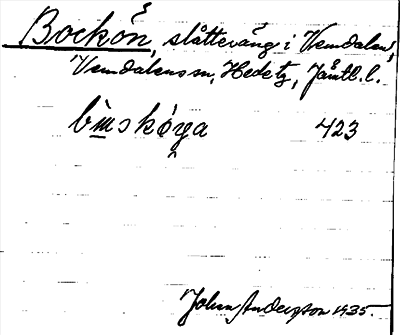 Bockön, slåtteväng i Vemdalen,
Vemdalens sn, Hede tg, Jämtl. l.
423
Johan Anderson 1935.